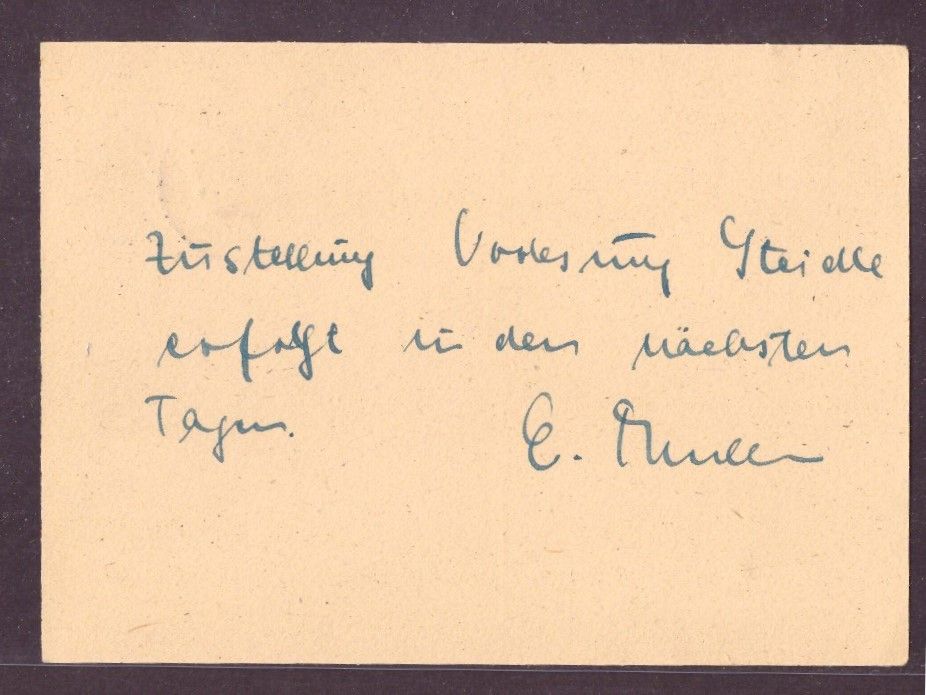 Zustellung Vorlesung Steidle
erfolgt in den nächsten
Tagen. E. Müller